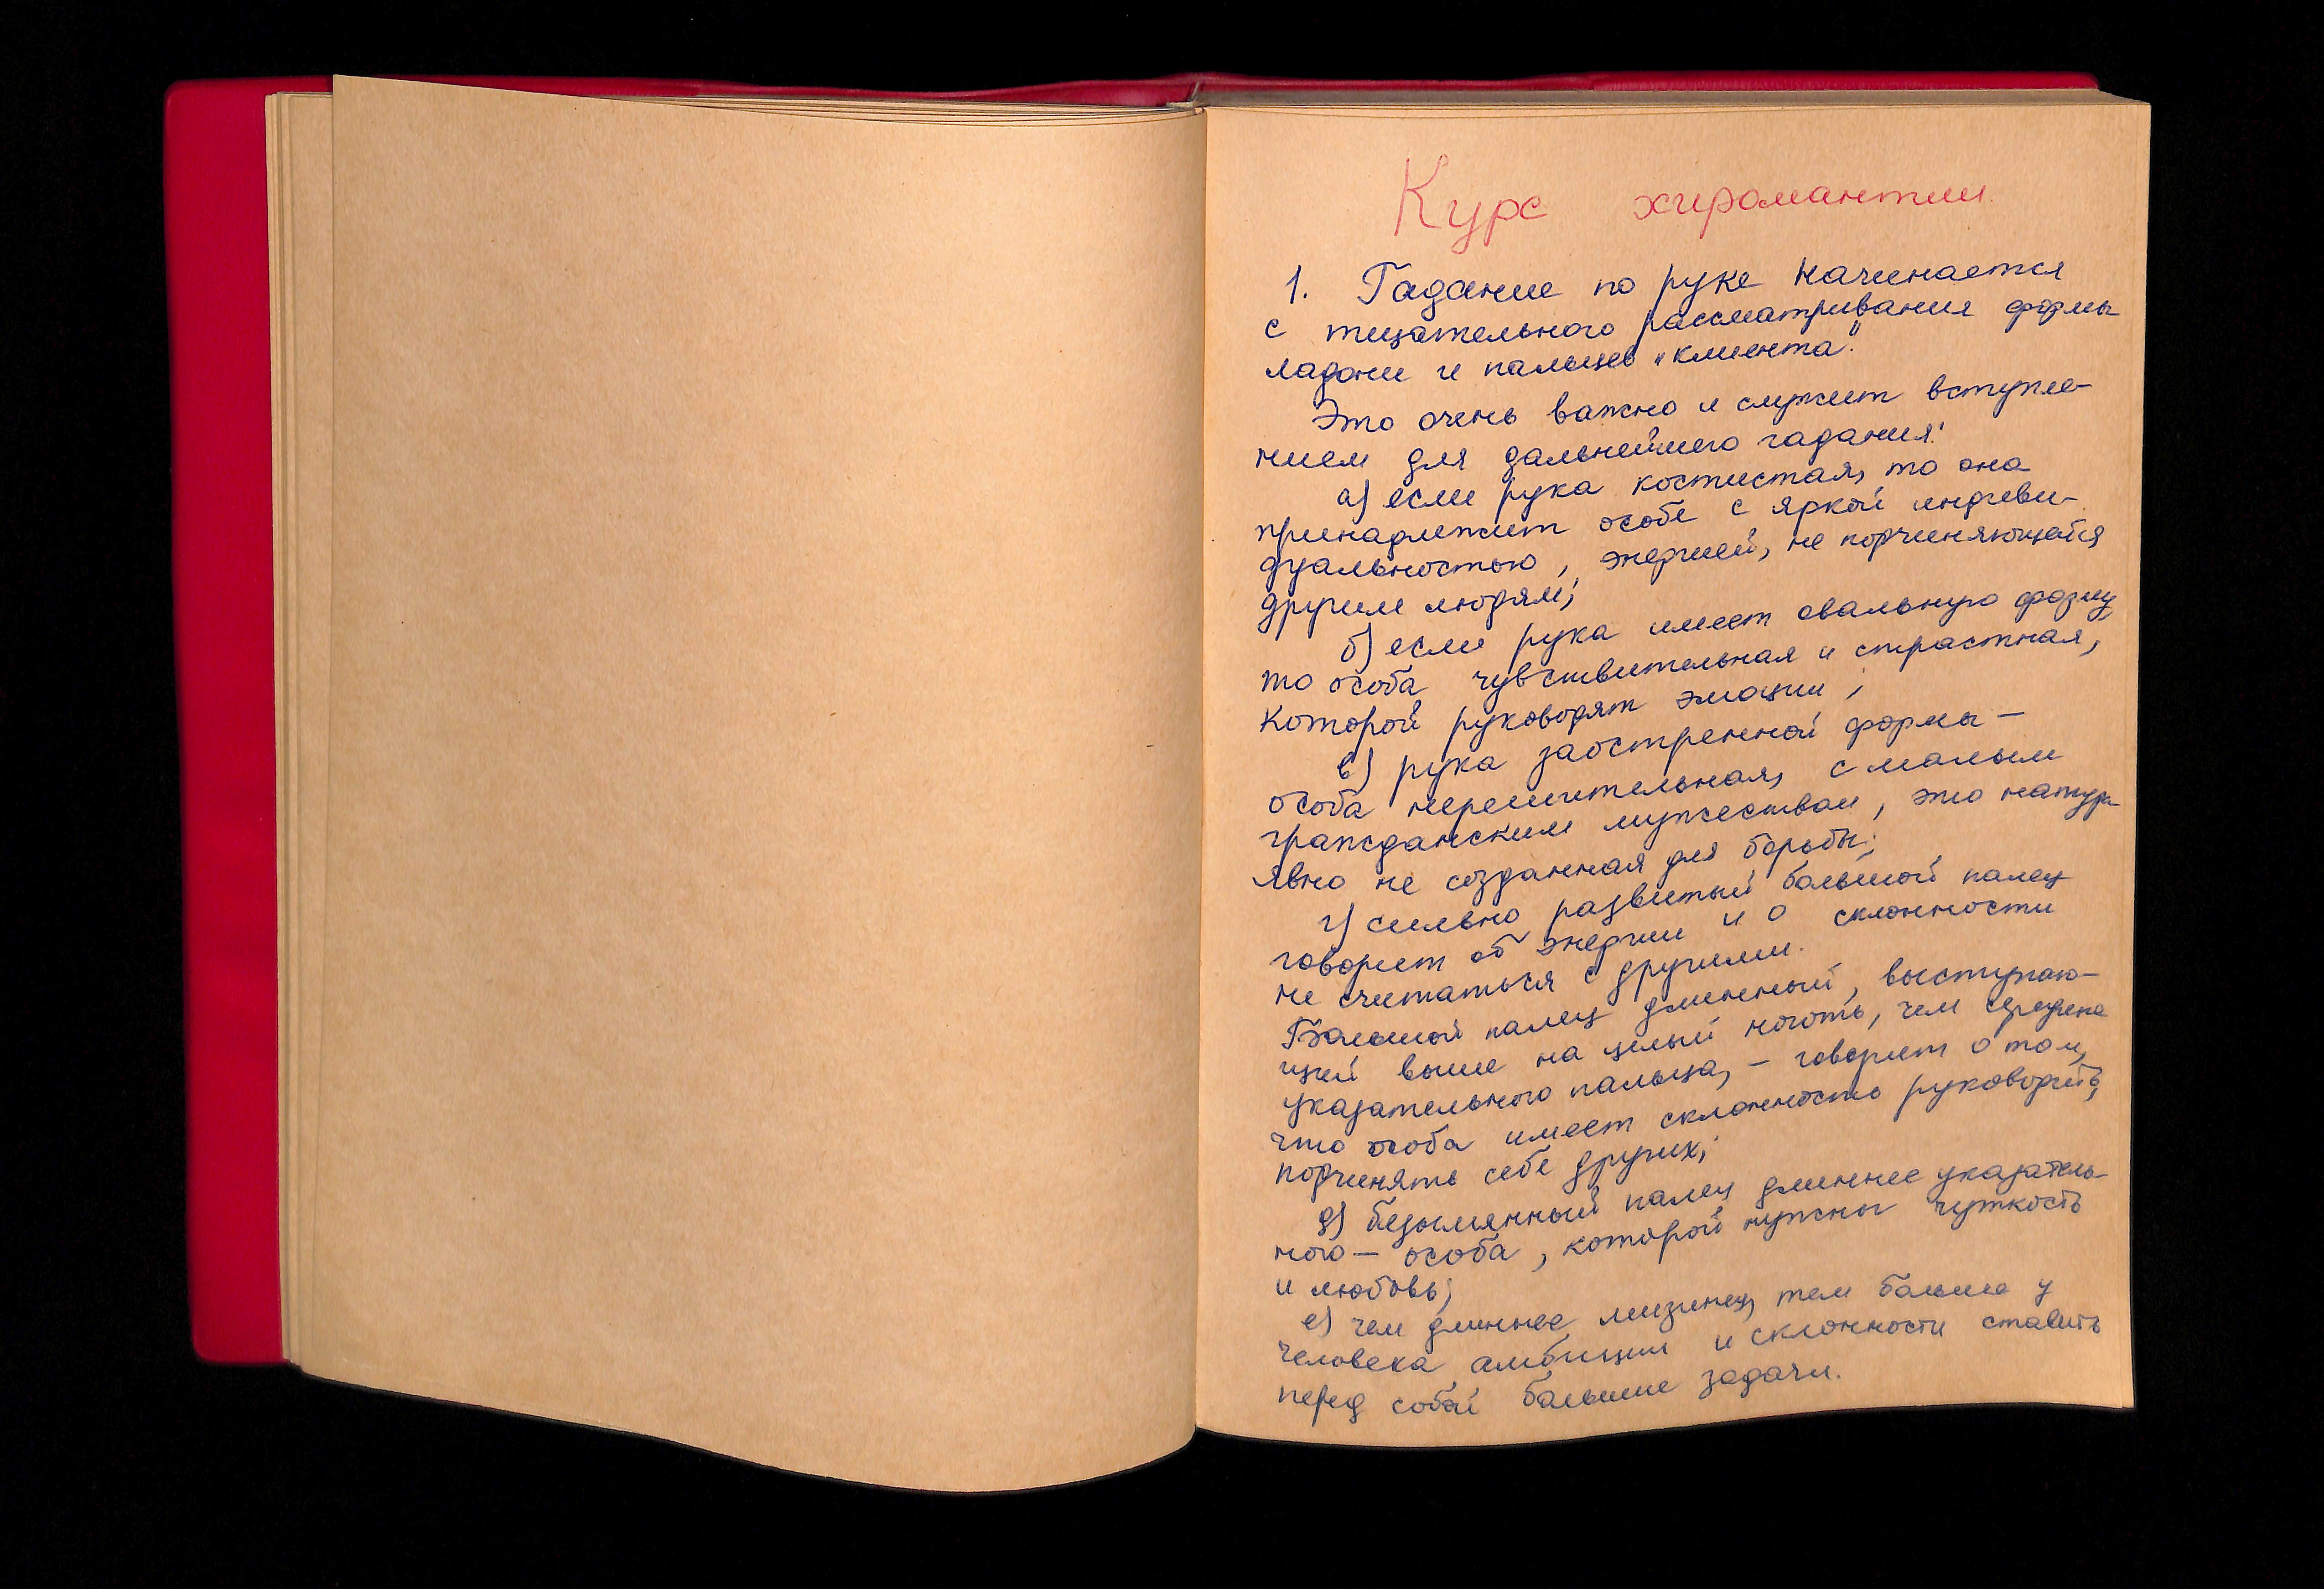 Курс хиромантии
1. Гадание по руке начинается
с тщательного рассматривания формы
ладони и пальцев „клиента".
Это очень важно и служит вступле-
нием для дальнейшего гадания:
а) если рука костистая, то она
принадлежит особе с яркой индиви-
дуальностью, энергией, не подчиняющейся
другим людям;
б) если рука имеет овальную форму,
то особа чувствительная и страстная,
которой руководят эмоции;
в) рука заостренной формы –
особа нерешительная, с малым
гражданским мужеством, это натура
явно не созданная для борьбы;
г) сильно развитый большой палец
говорит об энергии и о склонности
не считаться с другими.
Большой палец длинный, выступаю-
щий выше на целый ноготь, чем середина
указательного пальца, – говорит о том,
что особа имеет склонность руководить,
подчинять себе других;
д) безымянный палец длиннее указатель-
ного – особа, которой нужны чуткость
и любовь;
е) чем длиннее мизинец, тем больше у
человека амбиции и склонности ставить
перед собой большие задачи.